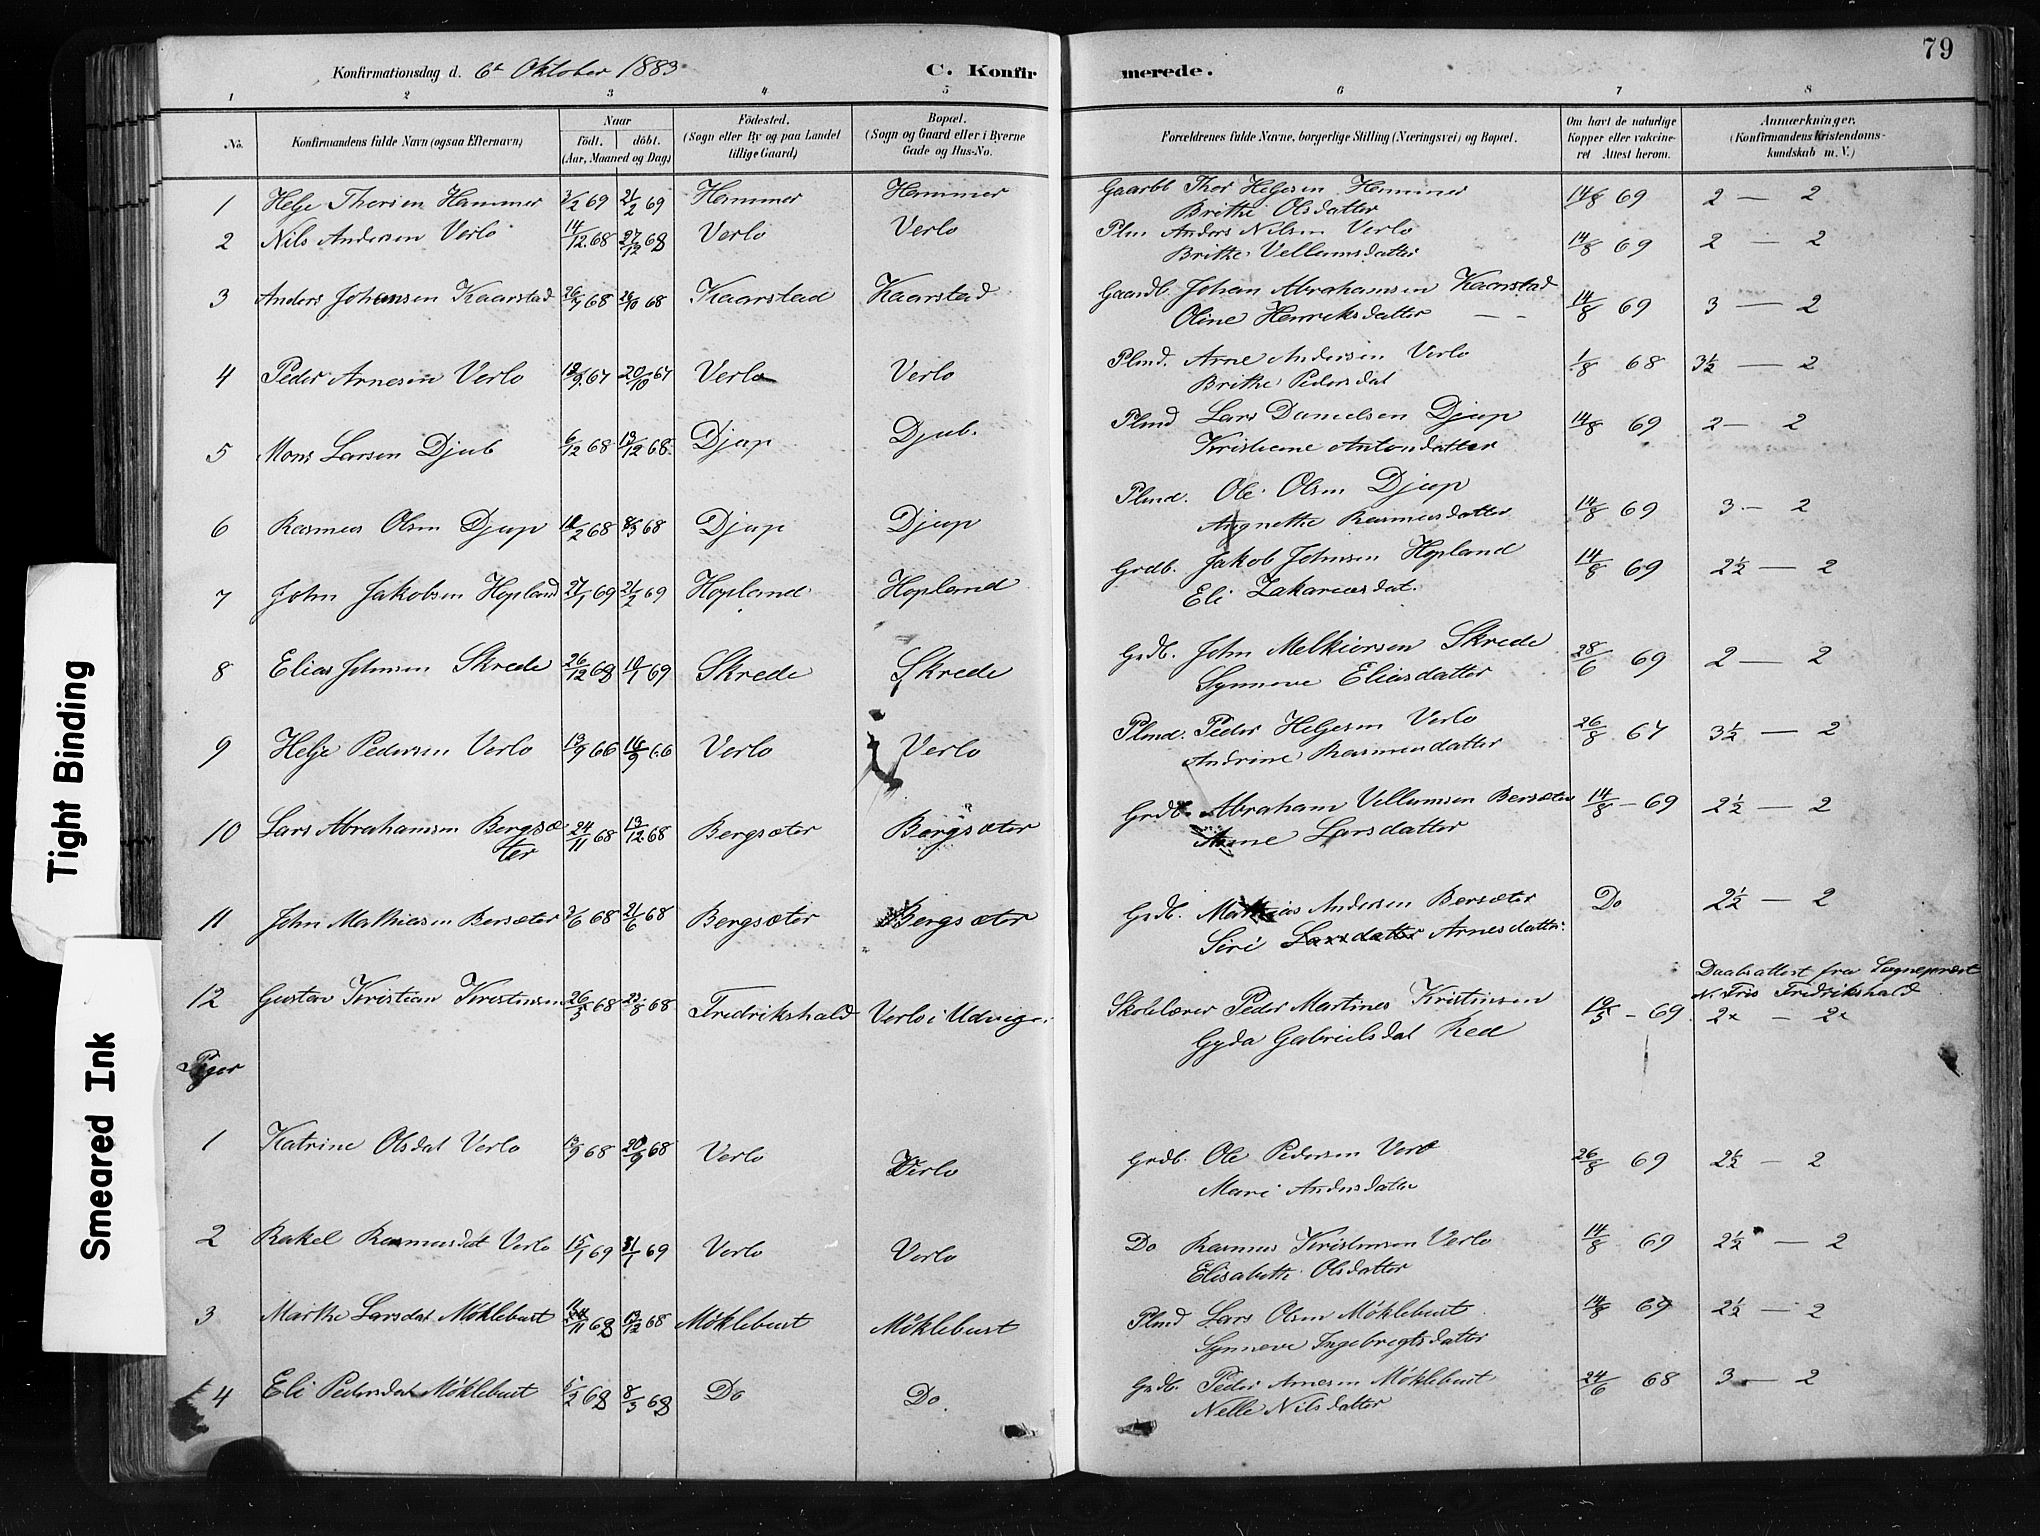 79
Konfirmationsdag d. 6t Oktober 1883
C. Konfirmerede.
1 2 3 4 5 6 7 8
No.
Konfirmandens fulde Navn (ogsaa Efternavn)
Naar
født. døbt.
(Aar, Maaned og Dag)
Fødested.
(Sogn eller By og paa Landet
tillige Gaard)
Bopæl.
(Sogn og Gaard eller i Byerne
Gade og Hus-No.
Forældrenes fulde Navne, borgerlige Stilling (Næringsvei) og Bopæl.
Om havt de naturlige
Kopper eller vakcine-
ret Attest herom.
Anmærkninger.
(Konfirmandens Kristendoms-
kundskab m. V.)
1 Helje Thorsen Hammer 3/2 69 21/2 69 Hammer Hammer Gaarbb Thor Helgesen Hammer 14/8 69 2 — 2
Brithe Olsdatter
2 Nils Andersen Verlo 14/12 68 27/12 68 Verlo Verlo Plm. Anders Nilsen Verlo 14/8 69 2 — 2
Brithe Vellumsdatter
3 Anders Johansen Kaarstad 26/9 68 26/10 68 Kaarstad Kaarstad Gaardb. Johan Abrahamsen Kaarstad 14/8 69 3 — 2
Oline Henriksdatter — -
4 Peder Arnesen Verlo 18/9 67 20/10 67 Verlo Verlo Plmd. Arne Andersen Verlo 1/8 68 3½ — 2
Brithe Pedersdat
5 Mons Larsen Djub 6/12 68 13/12 68 Djup Djub. Plmd Lars Danielsen Djup 14/8 69 2 — 2
Kristiane Antondatter
6 Rasmus Olsen Djup 11/2 68 8/3 68 Djup Djup Plmd. Ole Olsen Djup 14/8 69 3 — 2
Angnethe Rasmusdatter
7 John Jakobsen Hopland 27/1 69 21/2 69 Hopland Hopland Grdb. Jakob Johnsen Hopland 14/8 69 2½ — 2
Eli Zakariasdat.
8 Elias Johnsen Skrede 26/12 68 10/1 69 Skrede Skrede Grdb. John Melkiorsen Skrede 28/6 69 2 — 2
Synneve Eliasdatter
9 Helje Pedersen Verlo 13/9 66 16/9 66 Verlo Verlo Plmd. Peder Helgesen Verlo 26/8 67 3½ — 2
Andrine Rasmusdatter
10 Lars Abrahamsen Bergsæ
ter 24/11 68 13/12 68 Bergsæter Bergsæter Grdb. Abraham Vellumsen Bersæter 14/8 — 69 2½ — 2
Anne Larsdatter
11 John Mathiasen Bersæter 3/6 68 21/6 68 Bergsæter Bergsæter Grdb. Mathias Andersen Bersæter Do 2½ — 2
Siri Larsdatter Arnesdatter.
12 Gustav Kristian Kristinsen 26/5 68 23/8 68 Fredrikshald Verlo i Udvige. Skolelærer Peder Martines Kristinsen 19/5 — 69
Gyda Gabrielsdat Red
Daabsattest fra Sogneprest
N. Fris Fredrikshald
2x — 2x
Piger
1 Katrine Olsdat Verlo 13/9 68 20/9 68 Verlo Verlo Grdb. Ole Pedersen Verlo 26/8 69 2½ — 2
Mari Andersdatter
2 Rakel Rasmusdat Verlo 15/1 69 31/1 69 Verlo Verlo Do Rasmus Kristensen Verlo 14/8 69 2½ — 2
Elisabethe Olsdatter
3 Marthe Larsdat Møklebust 11 68 13/12 68 Møklebust Møklebust Plmd Lars Olsen Møklebust 14/8 69 2½ — 2
Synneve Ingebregtsdatter
4 Eli Pedersdat Møklebust 5/2 68 8/3 68 Do Do. Grdb. Peder Arnesen Møklebust 24/6 68 3 — 2
Nelle Nilsdatter
Tight Binding
Smeared Ink